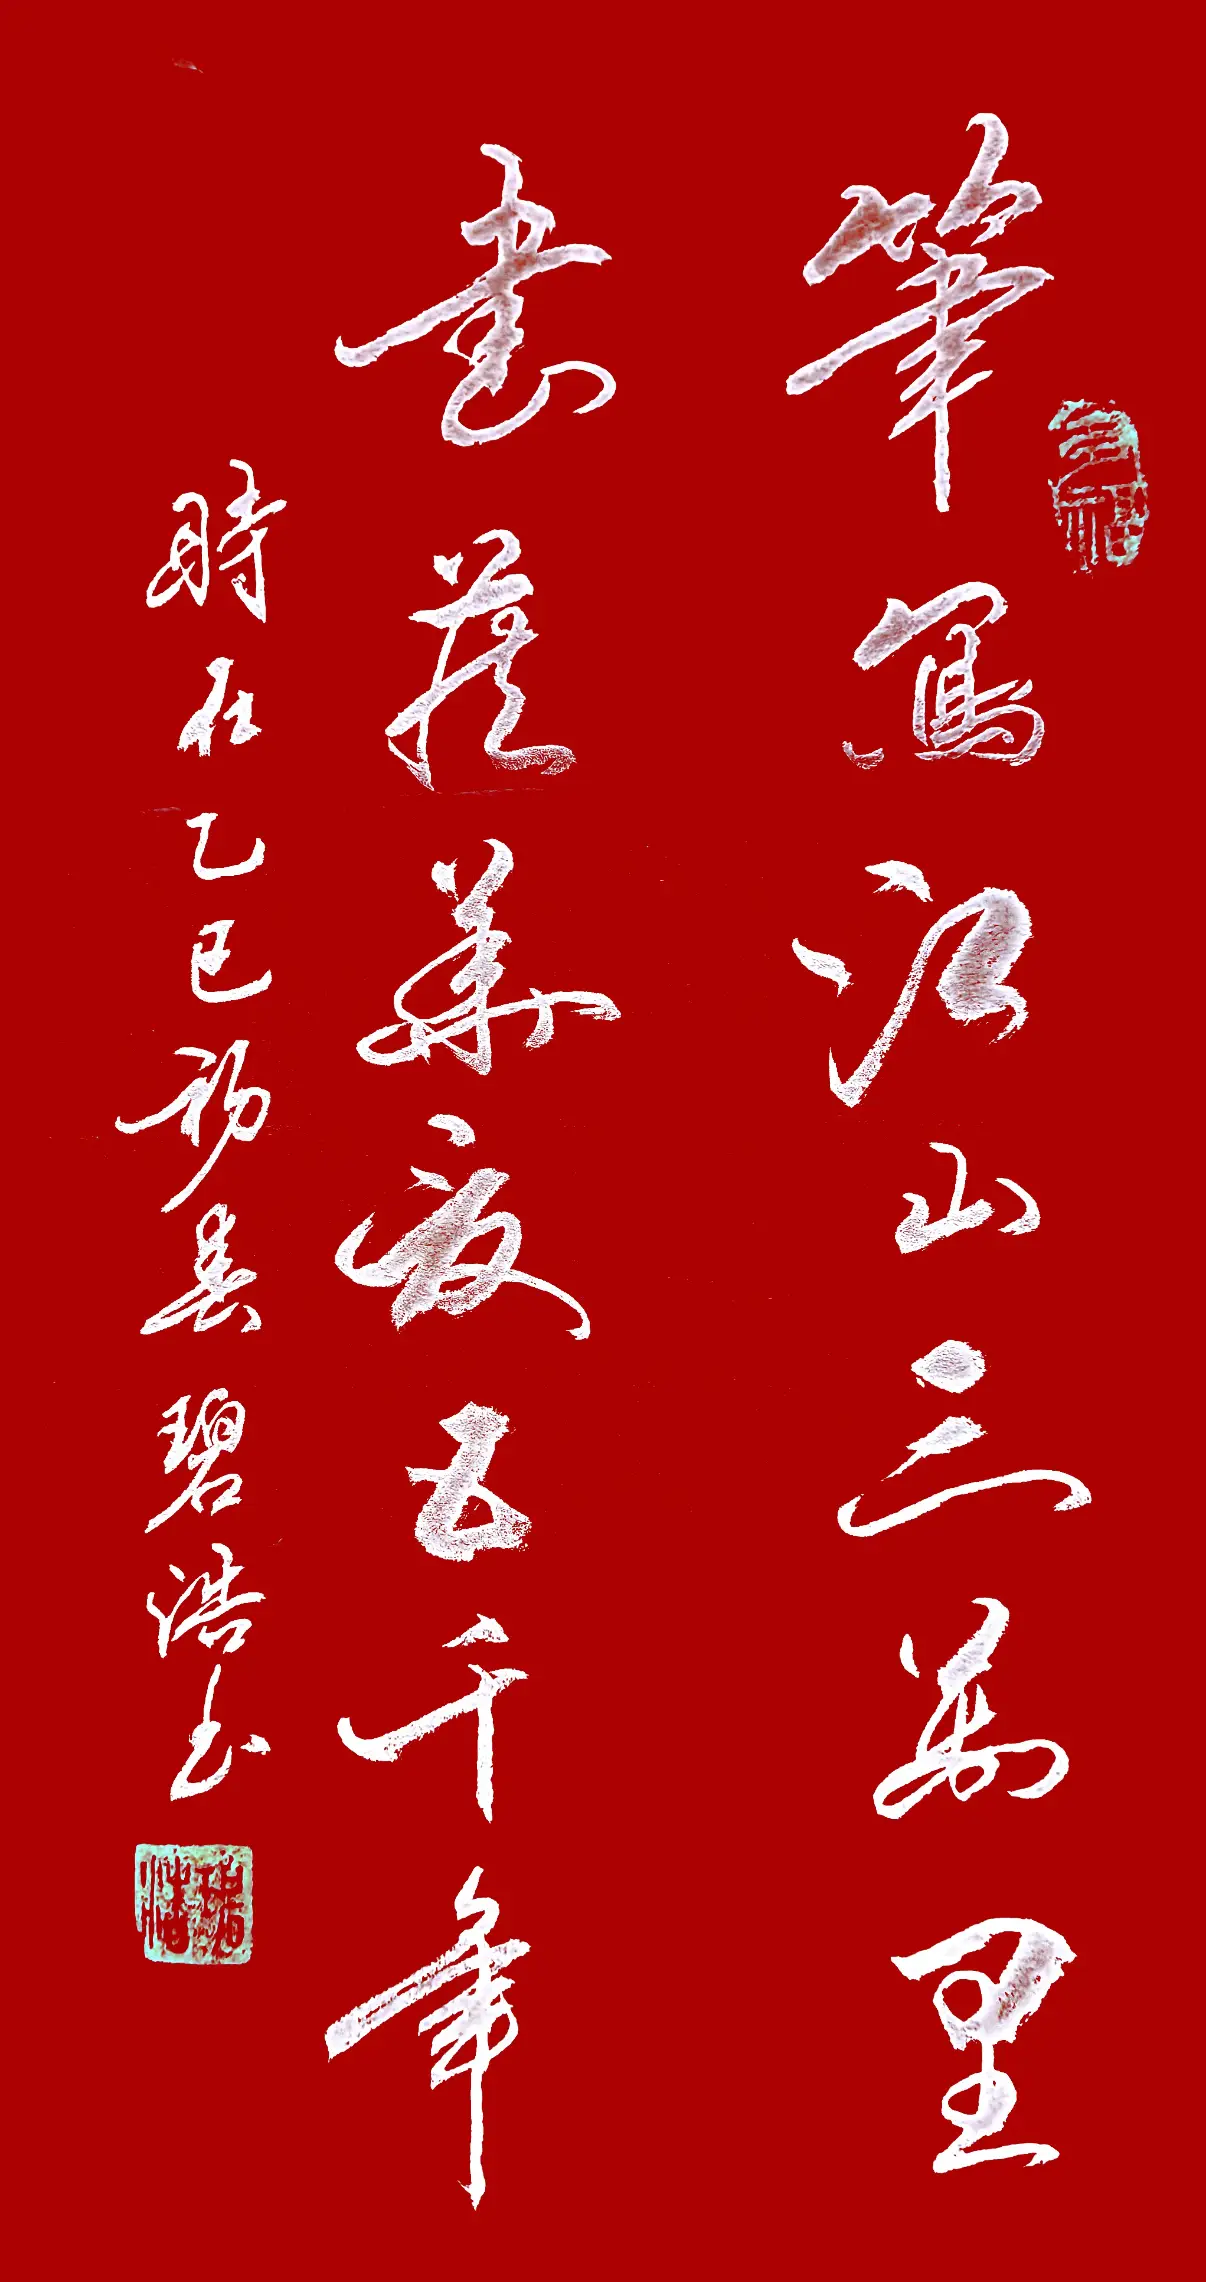 筆寫江山三萬里
書藏華夏五千年
時在乙巳初春 碧浩書